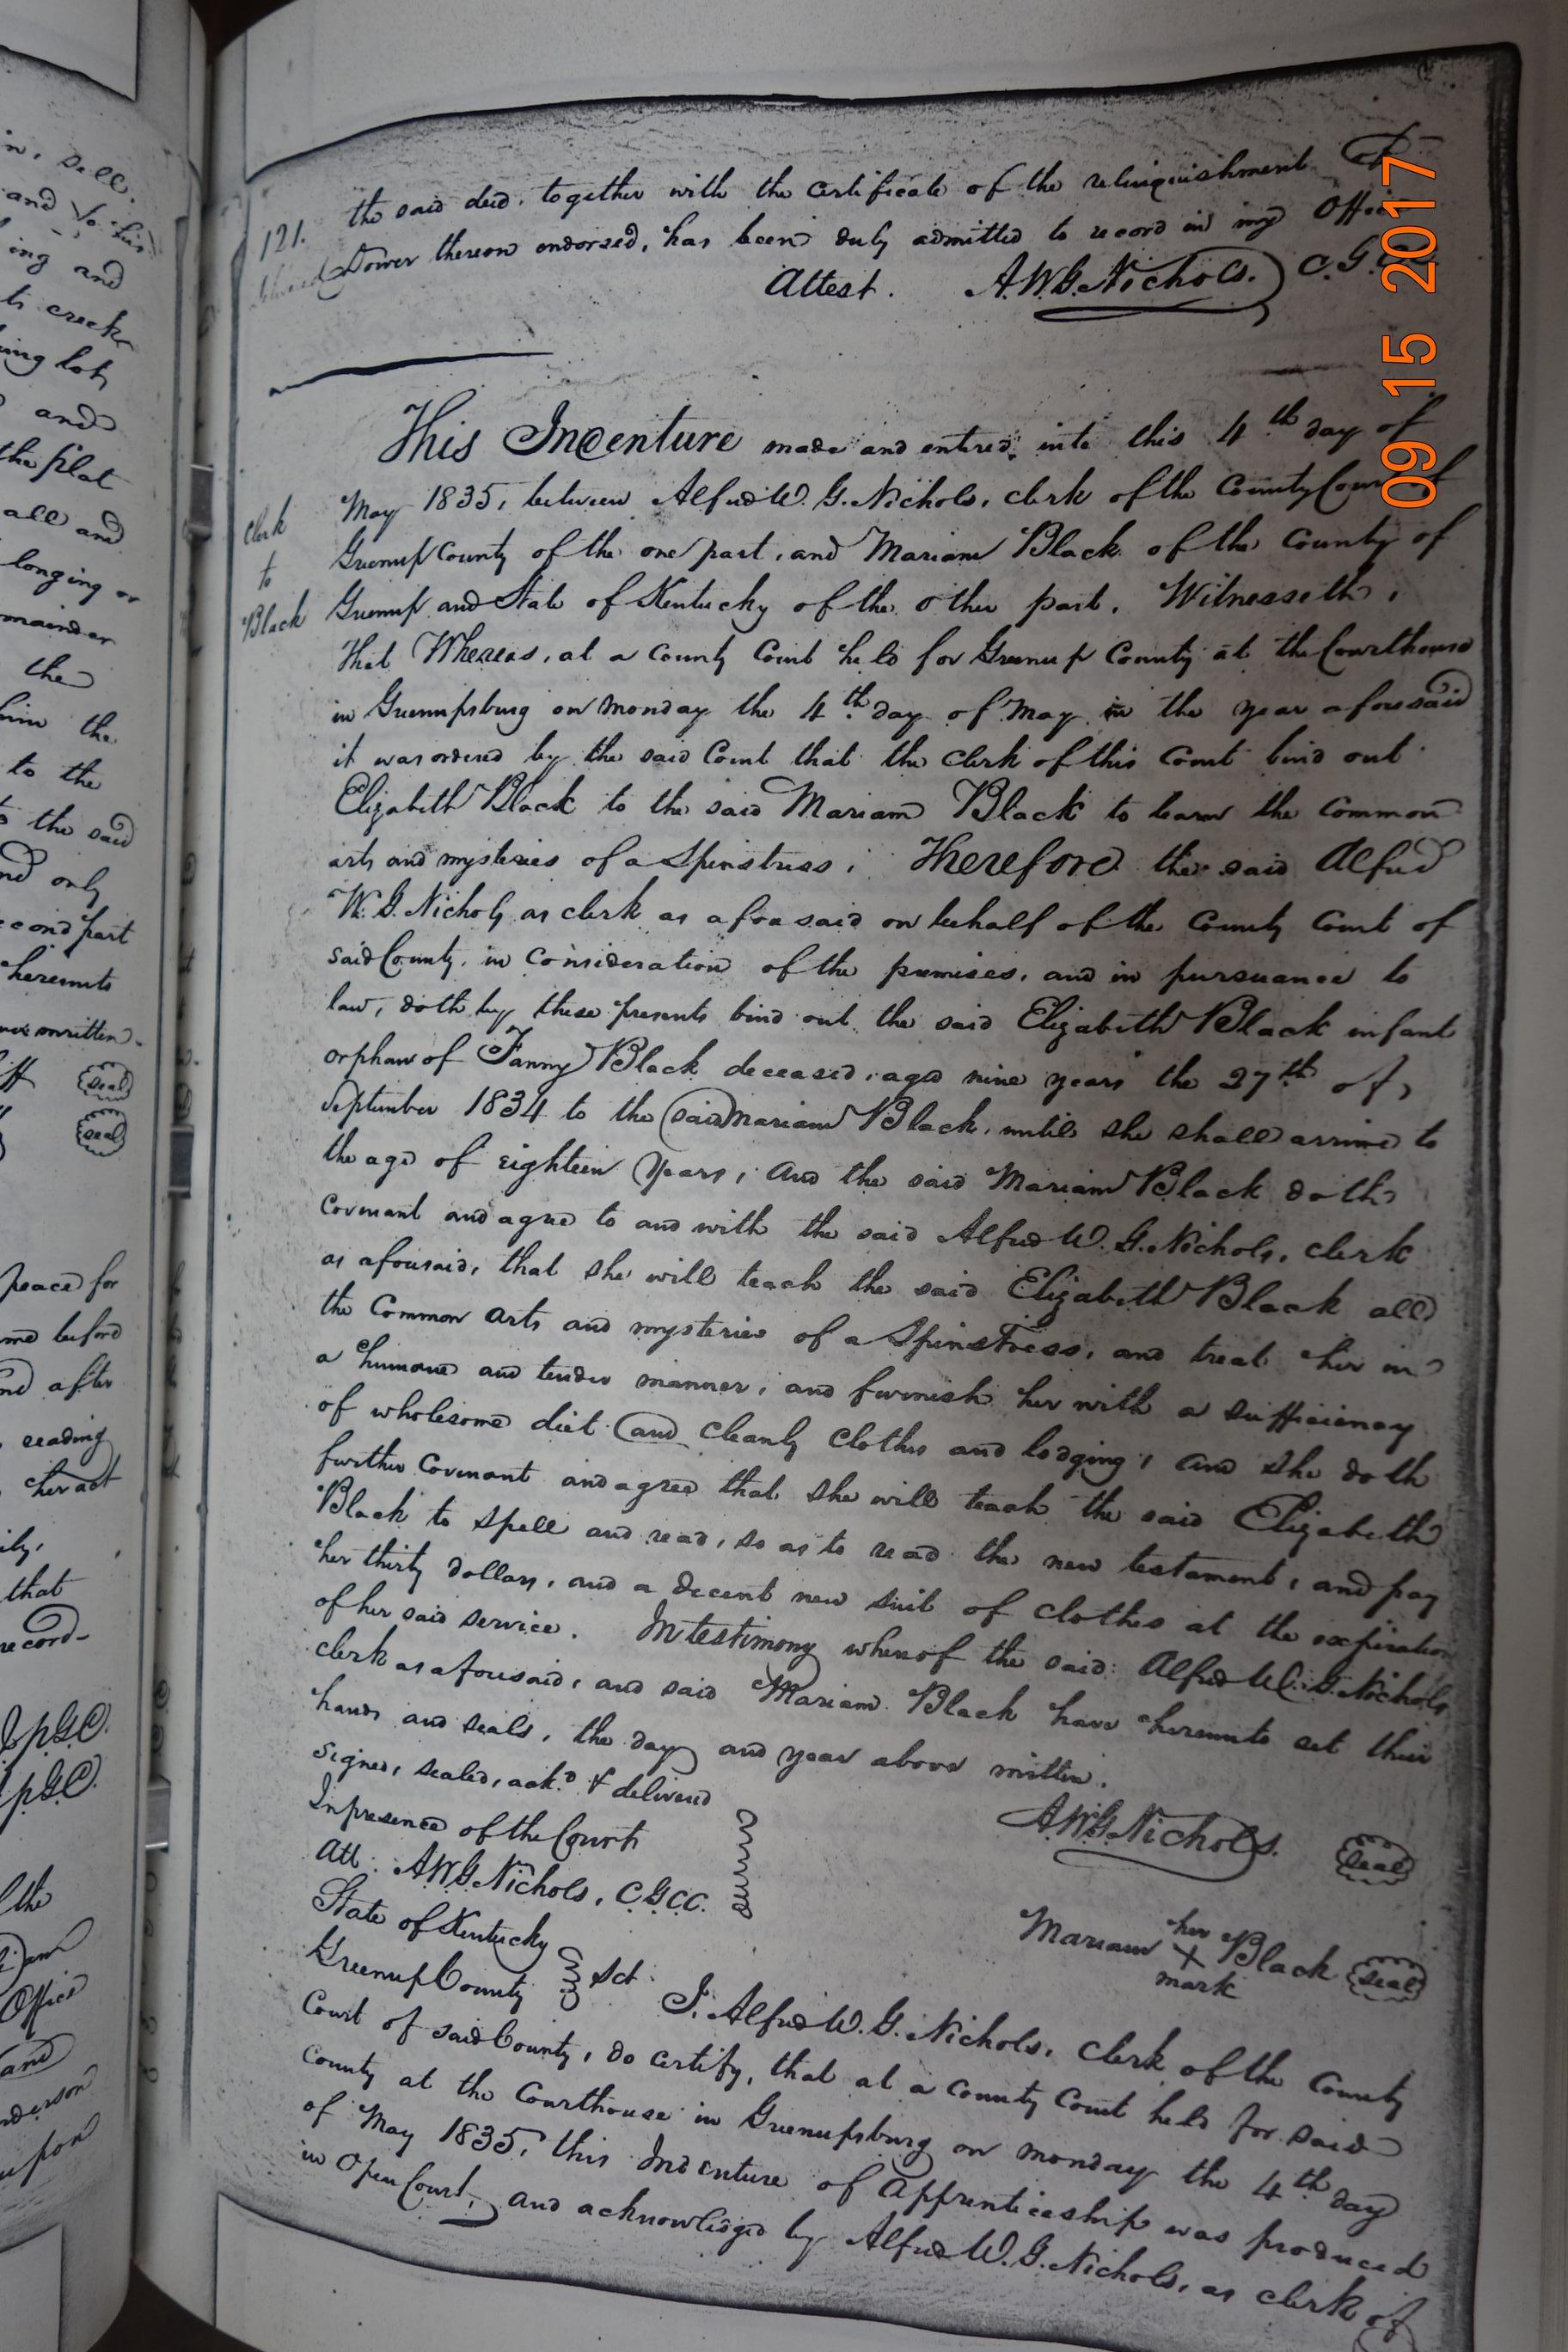 in, sell
and to his
ing and
ts creek
ing lot,
and
the plat
all and
longing or
mainder
the
him the
to the
to the said
nd only
econd part
hereunto
ove written.
seal
seal
peace for
me before
nd after
reading
her act
ily,
that
record-
J.p.G.C.
J.p.G.C.
the
Office
and
nderson
upon
121.
the said deed, together with the certificate of the relinquishment of
Dower thereon endorsed, has been duly admitted to record in my Office
Attest. A.W.G. Nichols. C.G.C.C.
Clerk
to
Black
This Indenture made and entered into this 4th day of
May 1835, between Alfred W. G. Nichols, clerk of the County Court of
Greenup County of the one part, and Mariam Black of the County of
Greenup and State of Kentucky of the other part, Witnesseth,
that Whereas, at a County Court held for Greenup County at the Courthouse
in Greenupsburg on monday the 4th day of May in the year aforesaid
it was ordered by the said Court that the clerk of this Court bind out
Elizabeth Black to the said Mariam Black to learn the Common
arts and mysteries of a Spinstress; Therefore the said Alfred
W. G. Nichols, as clerk as aforesaid on behalf of the County Court of
said County, in Consideration of the premises, and in pursuance to
law, doth by these presents bind out the said Elizabeth Black infant
orphan of Fanny Black deceased, aged nine years the 27th of
September 1834 to the said Mariam Black, until she shall arrive to
the age of eighteen Years; And the said Mariam Black doth
Covenant and agree to and with the said Alfred W. G. Nichols, clerk
as aforesaid, that she will teach the said Elizabeth Black all
the Common arts and mysteries of a Spinstress, and treat her in
a humane and tender manner, and furnish her with a sufficiency
of wholesome diet and cleanly clothes and lodging; and she doth
further Covenant and agree that she will teach the said Elizabeth
Black to spell and read, so as to read the new testament, and pay
her thirty dollars, and a decent new suit of clothes at the expiration
of her said service. In testimony whereof the said Alfred W. G. Nichols
clerk as aforesaid, and said Mariam Black have hereunto set their
hands and seals, the day and year above written.
Signed, sealed, ackd. & delivered
In presence of the Court
Att: A.W.G. Nichols, C.G.C.C.
A.W.G. Nichols. seal
her
Mariam X Black seal
mark
State of Kentucky
Greenup County Sct.
I, Alfred W. G. Nichols, clerk of the County
Court of said County, do certify, that at a County Court held for said
County at the Courthouse in Greenupsburg on monday the 4th day
of May 1835, this Indenture of Apprenticeship was produced
in Open Court, and acknowledged by Alfred W. G. Nichols, as clerk of
09 15 2017